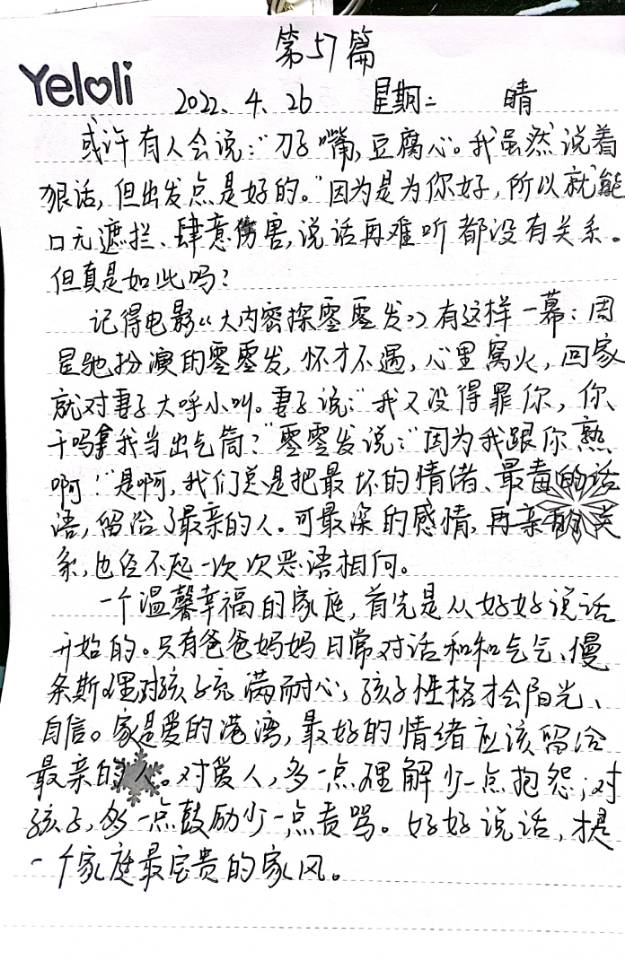 第57篇
Yeloli
2022.4.26 星期二 晴
或许有人会说:“刀子嘴,豆腐心。我虽然说着
狠话,但出发点是好的。”因为是为你好,所以就能
口无遮拦、肆意伤害,说话再难听都没有关系。
但真是如此吗?
记得电影《大内密探零零发》有这样一幕:周
星驰扮演的零零发,怀才不遇,心里窝火,回家
就对妻子大呼小叫。妻子说:“我又没得罪你,你
干吗拿我当出气筒?”零零发说:“因为我跟你熟
啊!”是啊,我们总是把最坏的情绪、最毒的话
语,留给了最亲的人。可最深的感情,再亲的关
系,也经不起一次次恶语相向。
一个温馨幸福的家庭,首先是从好好说话
开始的。只有爸爸妈妈日常对话和和气气、慢
条斯理对孩子充满耐心,孩子性格才会阳光、
自信。家是爱的港湾,最好的情绪应该留给
最亲的人。对爱人,多一点理解少一点抱怨;对
孩子,多一点鼓励少一点责骂。好好说话,才是
一个家庭最宝贵的家风。